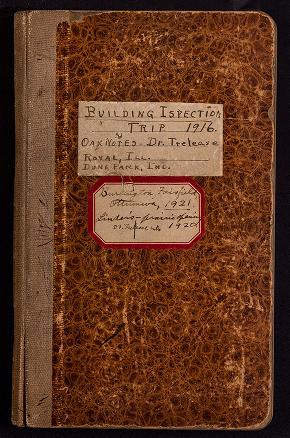 BUILDING ISPECTION
TRIP 1916.
OAK NOTES - Dr. Trelease
ROYAL, ILL.
DUNE PARK, IND.
Burlington Fairfield
Ottumwa, 1921
Linders - prairie
1920